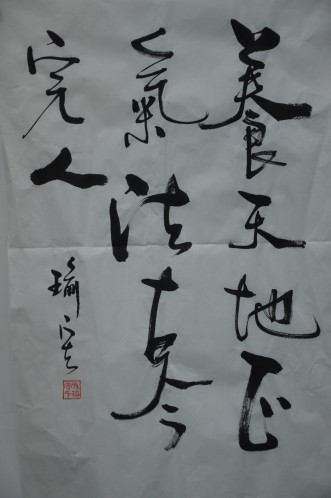 養天地正
氣法古今
完人
瑜